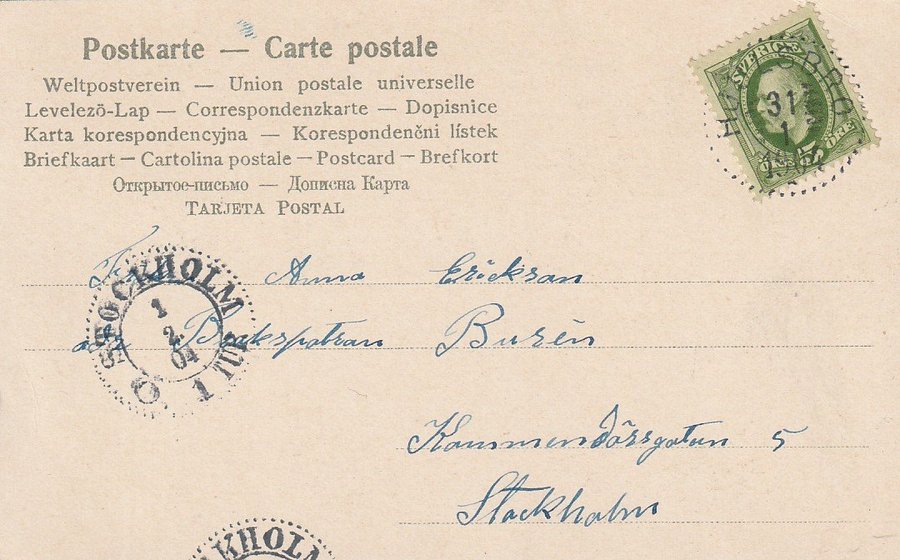 Postkarte — Carte postale
Weltpostverein — Union postale universelle
Levelezö-Lap — Correspondenzkarte — Dopisnice
Karta korespondencyjna — Korespondenčni lístek
Briefkaart — Cartolina postale — Postcard — Brefkort
Открытое-письмо — Дописна Карта
TARJETA POSTAL
SVERIGE
31
1
ÖRE 5 ÖRE
Anna Erickson
adr Bokspatran Burén
Kommendörsgatan 5
Stockholm
STOCKHOLM
1
2
04
1 TUR
KHOLM